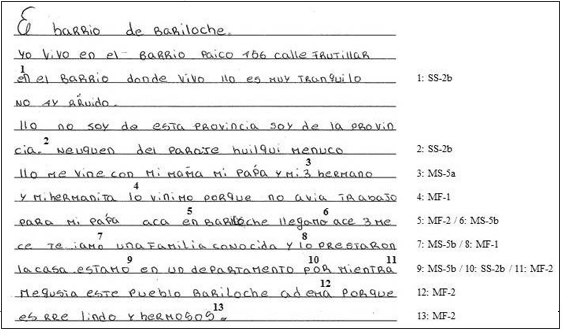 El barrio de Bariloche.
yo vivo en el barrio Paico 156 calle Frutillar
1
en el Barrio donde vivo llo es muy tranquilo 1: SS-2b
no ay rruido.
llo no soy de esta provincia soy de la provin
2
cia. neuquen del paraje huilqui menuco 2: SS-2b
3
llo me vine con mi mama mi papa y mi 3 hermano 3: MS-5a
4
y mi hermanita lo vinimo porque no avia trabajo 4: MF-1
5 6
para mi papa aca en Bariloche llegamo ace 3 me 5: MF-2 / 6: MS-5b
7 8
ce te iamo una familia conocida y lo prestaron 7: MS-5b / 8: MF-1
9 10 11
la casa estamo en un departamento por mientra 9: MS-5b / 10: SS-2b / 11: MF-2
12
me gusta este pueblo Bariloche ademá porque 12: MF-2
13
es rre lindo y hermosos. 13: MF-2